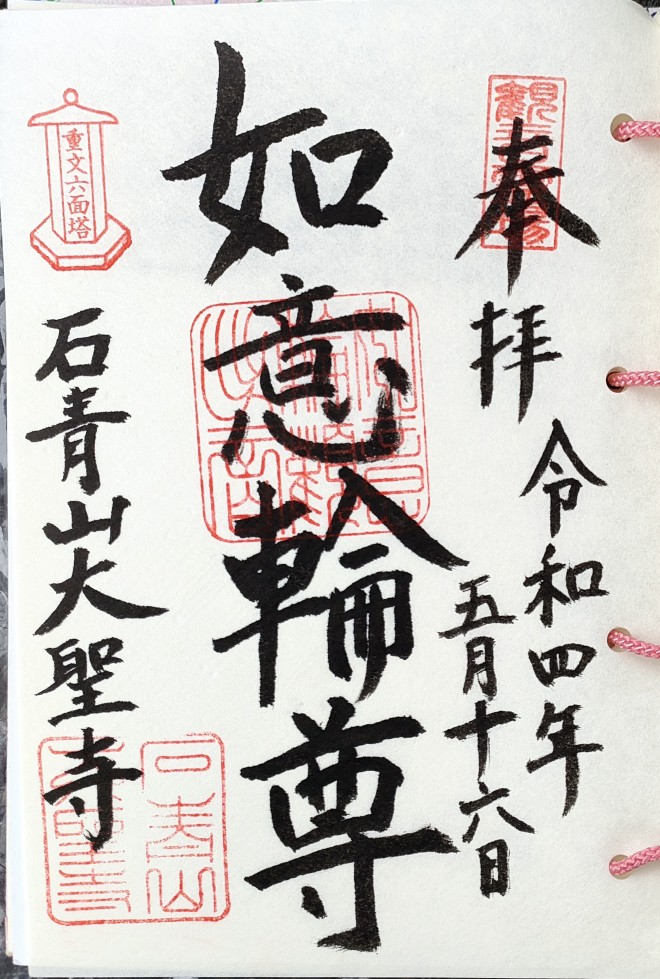 奉拝
令和四年
五月十六日
如意輪尊
重文六面塔
石青山大聖寺
石青山
大聖寺